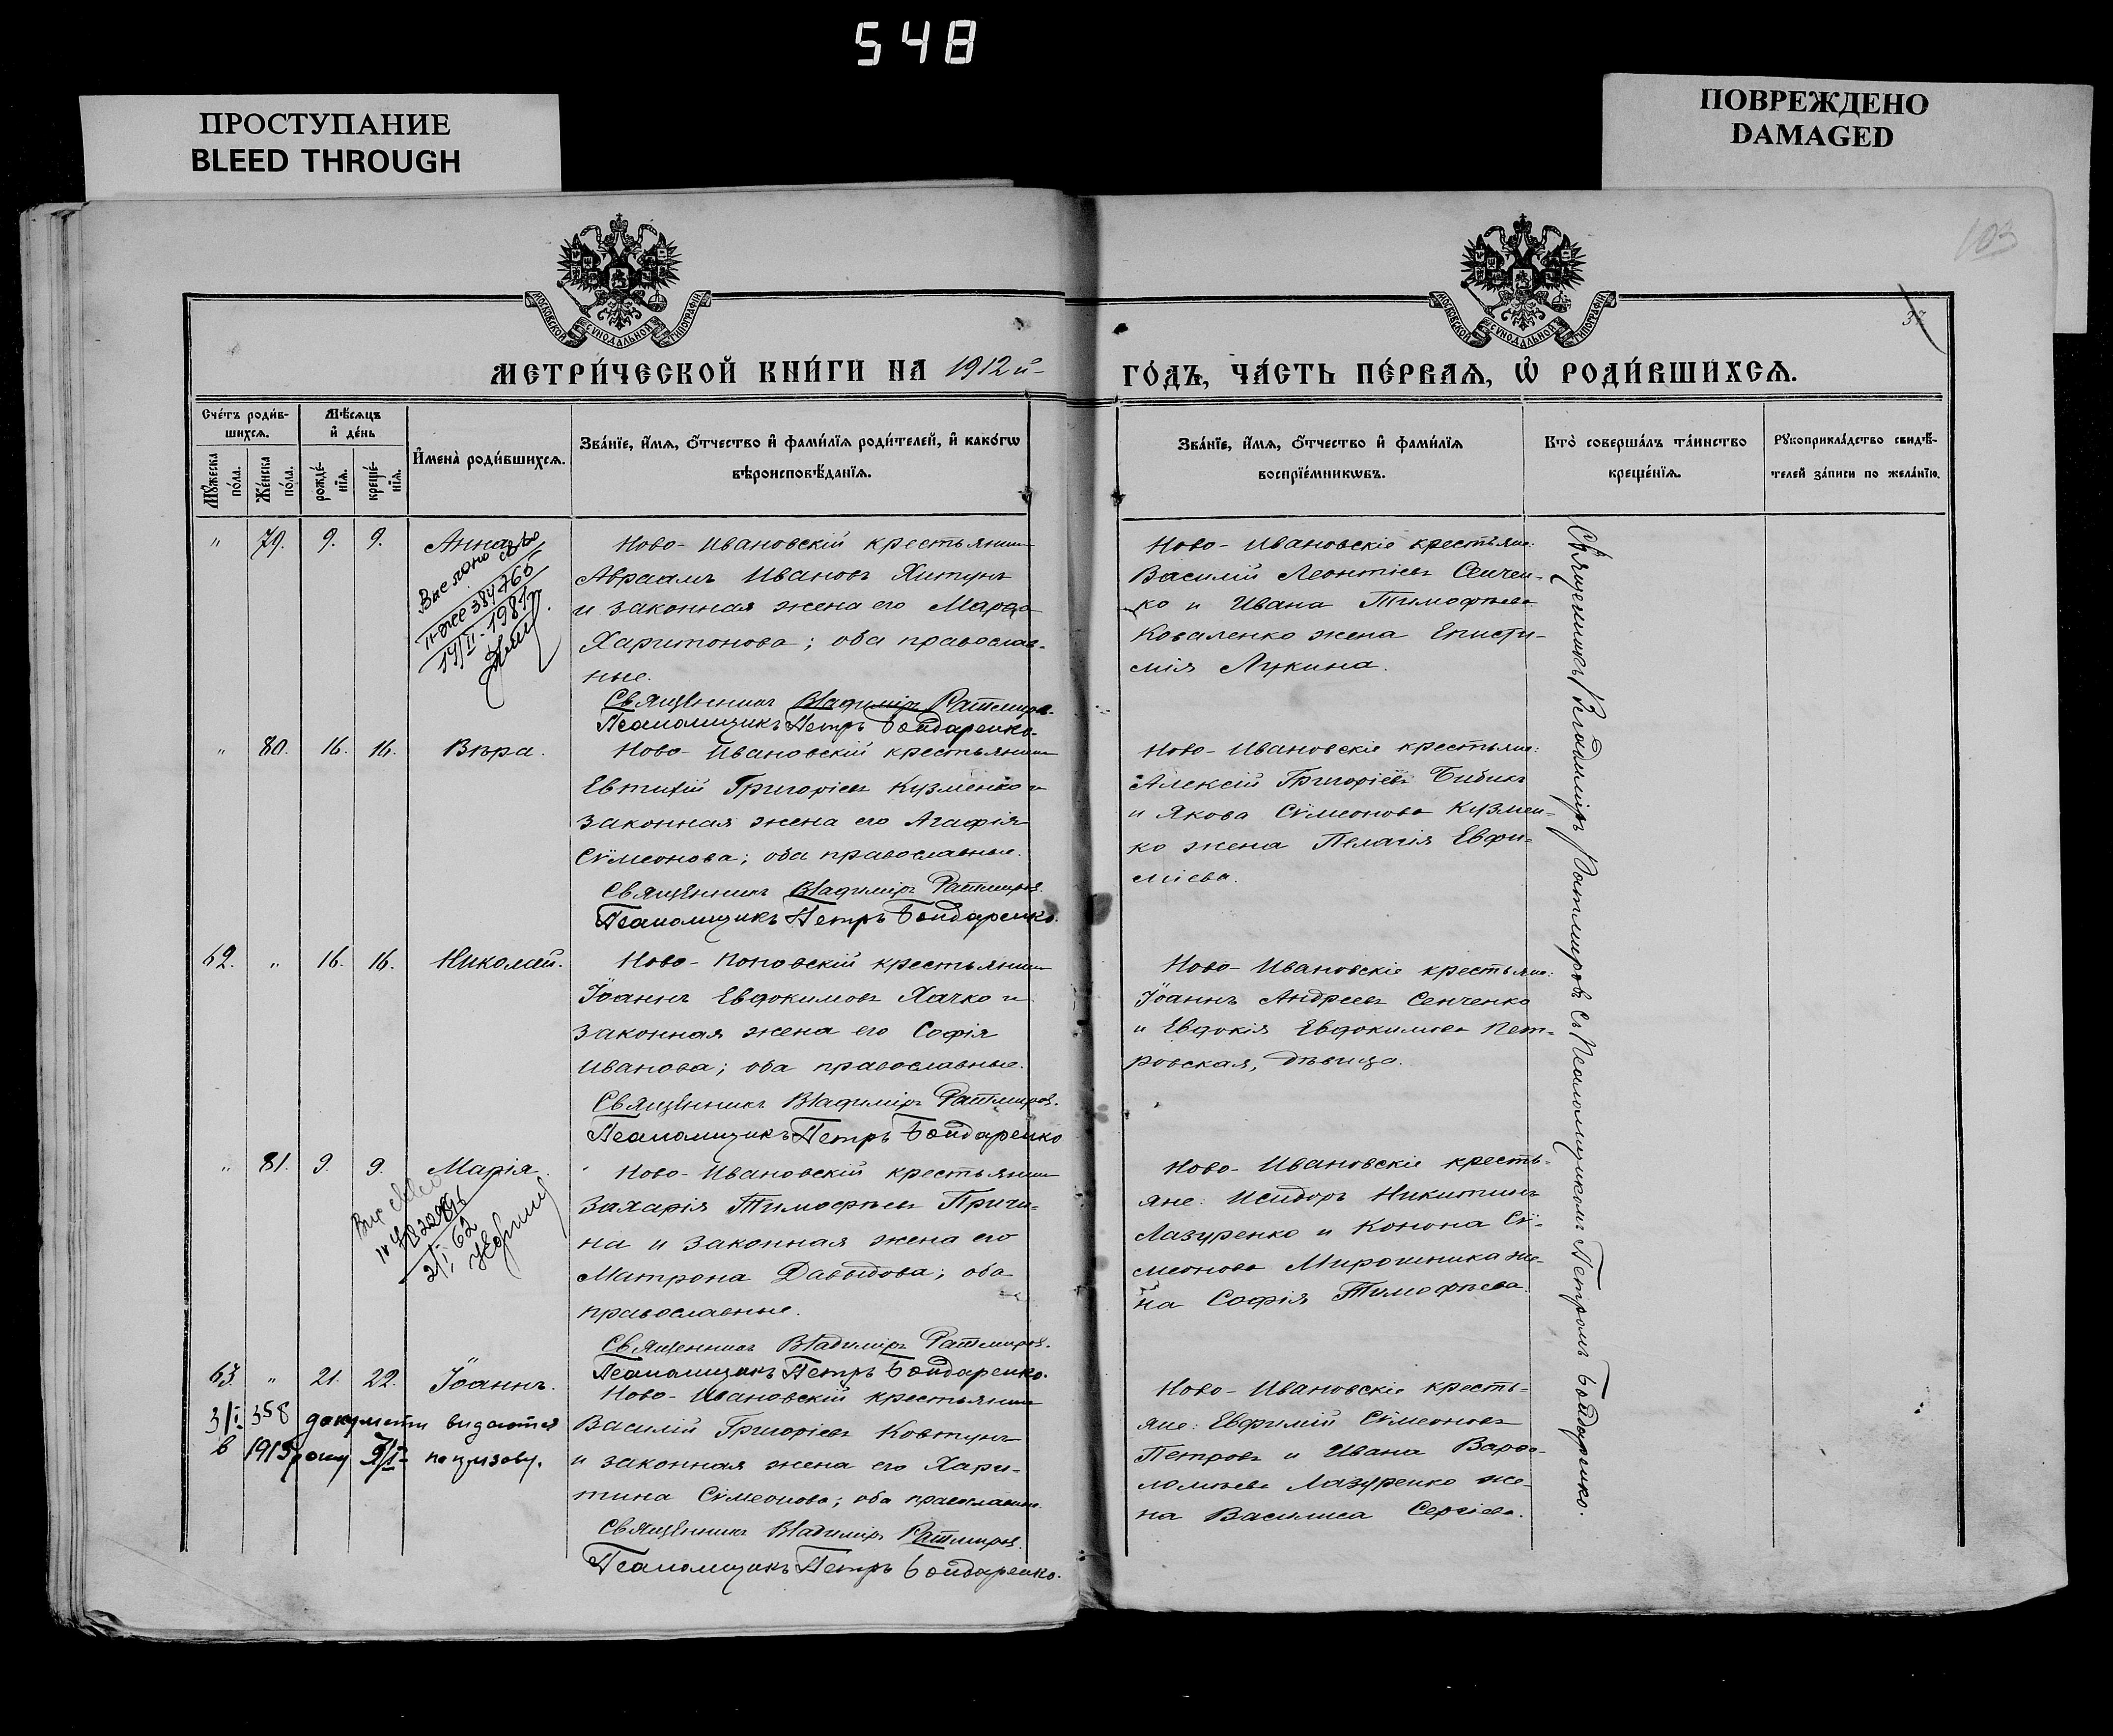 548
ПРОСТУПАНИЕ
BLEED THROUGH
ПОВРЕЖДЕНО
DAMAGED
103
37
МОСКОВСКОЙ СѴНОДАЛЬНОЙ ТИПОГРАФІИ
МОСКОВСКОЙ СѴНОДАЛЬНОЙ ТИПОГРАФІИ
МЕТРИ́ЧЕСКОЙ КНИ́ГИ НА 1912й
ГО́ДЪ, ЧА́СТЬ ПЕ́РВАЯ, Ѡ҆ РОДИ́ВШИХСЯ.
Сче́тъ роди́в-
шихся.
Мѣ́сяцъ
и҆ де́нь
Мꙋ́жеска по́ла.
Же́нска по́ла.
рожде́-
нїя.
креще́-
нїя.
И҆мена̀ роди́вшихся.
Зва́нїе, и҆́мя, ѻ҆́тчество и҆ фами́лїя роди́телей, и҆ како́гѡ
вѣроисповѣ́данїя.
Зва́нїе, и҆́мя, ѻ҆́тчество и҆ фами́лїя
воспрїе́мникѡвъ.
Кто̀ соверша́лъ та́инство
креще́нїя.
Рꙋкоприкла́дство свидѣ́-
телей за́писи по жела́нїю.
" 79. 9. 9. Анна
Ново-Ивановскій крестьянинъ
Авраамъ Ивановъ Хитунъ
и законная жена его Марѳа
Харитонова; оба православ-
ные.
Священникъ Владиміръ Ратмировъ.
Псаломщикъ Петръ Бондаренко.
Ново-Ивановскіе крестьяне:
Василій Леонтіевъ Сенчен-
ко и Ивана Тимофѣева
Коваленко жена Еписти-
мія Лукина.
" 80. 16. 16. Вѣра.
Ново-Ивановскій крестьянинъ
Евтихій Григоріевъ Кузменко и
законная жена его Агафія
Сѵмеонова; оба православные.
Священникъ Владиміръ Ратмировъ.
Псаломщикъ Петръ Бондаренко.
Ново-Ивановскіе крестьяне:
Алексій Григоріевъ Бибикъ
и Якова Сѵмеонова Кузмен-
ко жена Пелагія Евфи-
міева.
62. " 16. 16. Николай.
Ново-Поповскій крестьянинъ
Іоаннъ Евдокимовъ Хачко и
законная жена его Софія
Иванова; оба православные.
Священникъ Владиміръ Ратмировъ.
Псаломщикъ Петръ Бондаренко
Ново-Ивановскіе крестьяне:
Іоаннъ Андреевъ Сенченко
и Евдокія Евдокимова Пет-
ровская, дѣвица.
" 81. 9. 9. Марія.
Ново-Ивановскій крестьянинъ
Захарія Тимофѣевъ Причи-
на и законная жена его
Матрона Давыдова; оба
православные.
Священникъ Владиміръ Ратмировъ.
Псаломщикъ Петръ Бондаренко.
Ново-Ивановскіе кресть-
яне: Исидоръ Никитинъ
Лазуренко и Конона Сѵ-
меонова Мирошника же-
на Софія Тимофѣева.
63. " 21. 22. Іоаннъ.
3/I 358 документи видаются
в 1915 рому 9/I по призову.
Ново-Ивановскій крестьянинъ
Василій Григоріевъ Ковтунъ
и законная жена его Хари-
тина Сѵмеонова; оба православные.
Священникъ Владиміръ Ратмировъ.
Псаломщикъ Петръ Бондаренко.
Ново-Ивановскіе кресть-
яне: Евфимій Сѵмеоновъ
Петровъ и Ивана Варѳо-
ломѣева Лазуренко же-
на Василиса Сергіева.
Священникъ Владиміръ Ратмировъ съ Псаломщикомъ Петромъ Бондаренко.